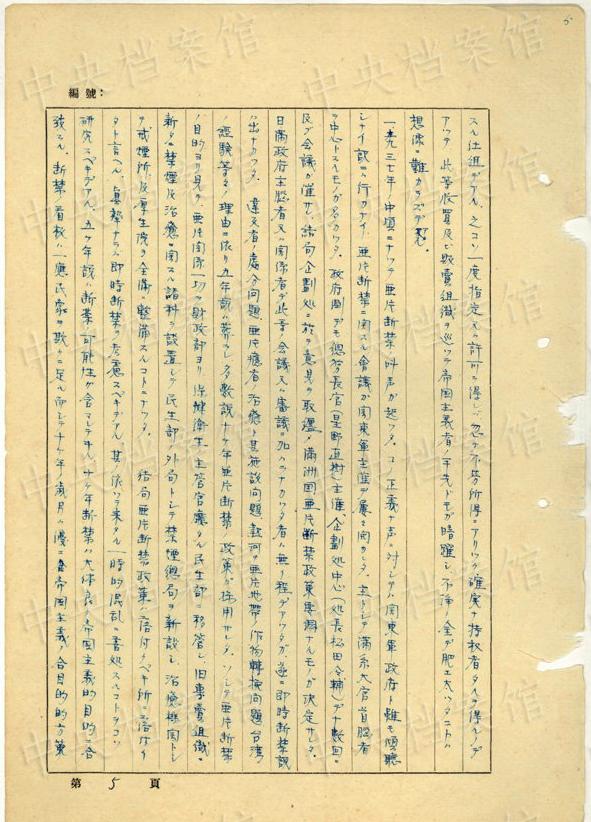 編號：
スル仕組デアル、之コソ一度指定又ハ許可ヲ得レバ忽チ不労所得ニアリツク確実ナ特权者タルヲ得ルノデ
アツタ 此等收買及ビ販賣組織ヲ巡ツテ帝国主義者ノ手先ドモガ暗躍シ、不浄ノ金デ肥エ太ツタコトハ
想像ニ難カラズデアル。
一九三七年ノ中頃ニナツテ亜片断禁ノ叫声ガ起ツタ。コノ正義ノ声ニ対シテハ関東軍政府ト雖モ傾聴
シナイ訳ニ行カナイ。亜片断禁ニ関スル會議ガ関東軍主催デ屢々開カレタ。主トシテ満系大官首脳者
ヲ中心トスルモノガ多カツタ。政府側デモ總務長官（星野直樹）主催、企劃処中心（処長松田令輔）デ十数回ニ
及ブ会議ガ催サレ、諸向企劃処ニ於テ意見ヲ取纏メ満洲国亜片断禁政策要綱ナルモノガ決定サレタ。
日満政府主脳者又ハ関係者デ此等ノ会議又ハ審議ニ加ハラナカツタ者ハ無イ程デアツタガ遂ニ即時断禁説
ハ出ナカツタ。違反者ノ處分問題、亜片癮者ノ治癒ト其施設問題、熱河ノ亜片地帯ノ作物轉換問題、台湾ノ
経験等多クノ理由ニ依リ五年説ハ葬ラレ多数説十ケ年亜片断禁ノ政策ガ採用サレタ。ソシテ亜片断禁
ノ目的ヨリ見テ亜片関係一切ヲ財政部ヨリ保健衛生ノ主管官廳タル民生部ニ移管シ、旧専賣組織ニ
新タニ禁煙及治癒ニ関スル諸科ヲ設置シテ民生部ノ外局トシテ禁煙總局ヲ新設シ、治癒機関トシ
テ戒煙所及厚生院ヲ全満ニ整備スルコトニナツタ。 結局亜片断禁政策ハ落付クベキ所ニ落付イ
タト言ヘル。真摯ナラバ即時断禁ヲ考慮スベキデアル、其ノ依ツテ来タル一時的混乱ニ善処スルコトヲコソ
研究スベキデアル。五ケ年説ハ断禁ノ可能性ガ含マレテヰル。十ケ年断禁ハ大体良ク帝国主義的目的ニ合
致スル。断禁ノ看板ハ一應民衆ヲ欺クニ足ル而シテ十ケ年ノ歳月ハ優ニ帝国主義ノ合目的的方策
第 5 頁
5
中央档案馆